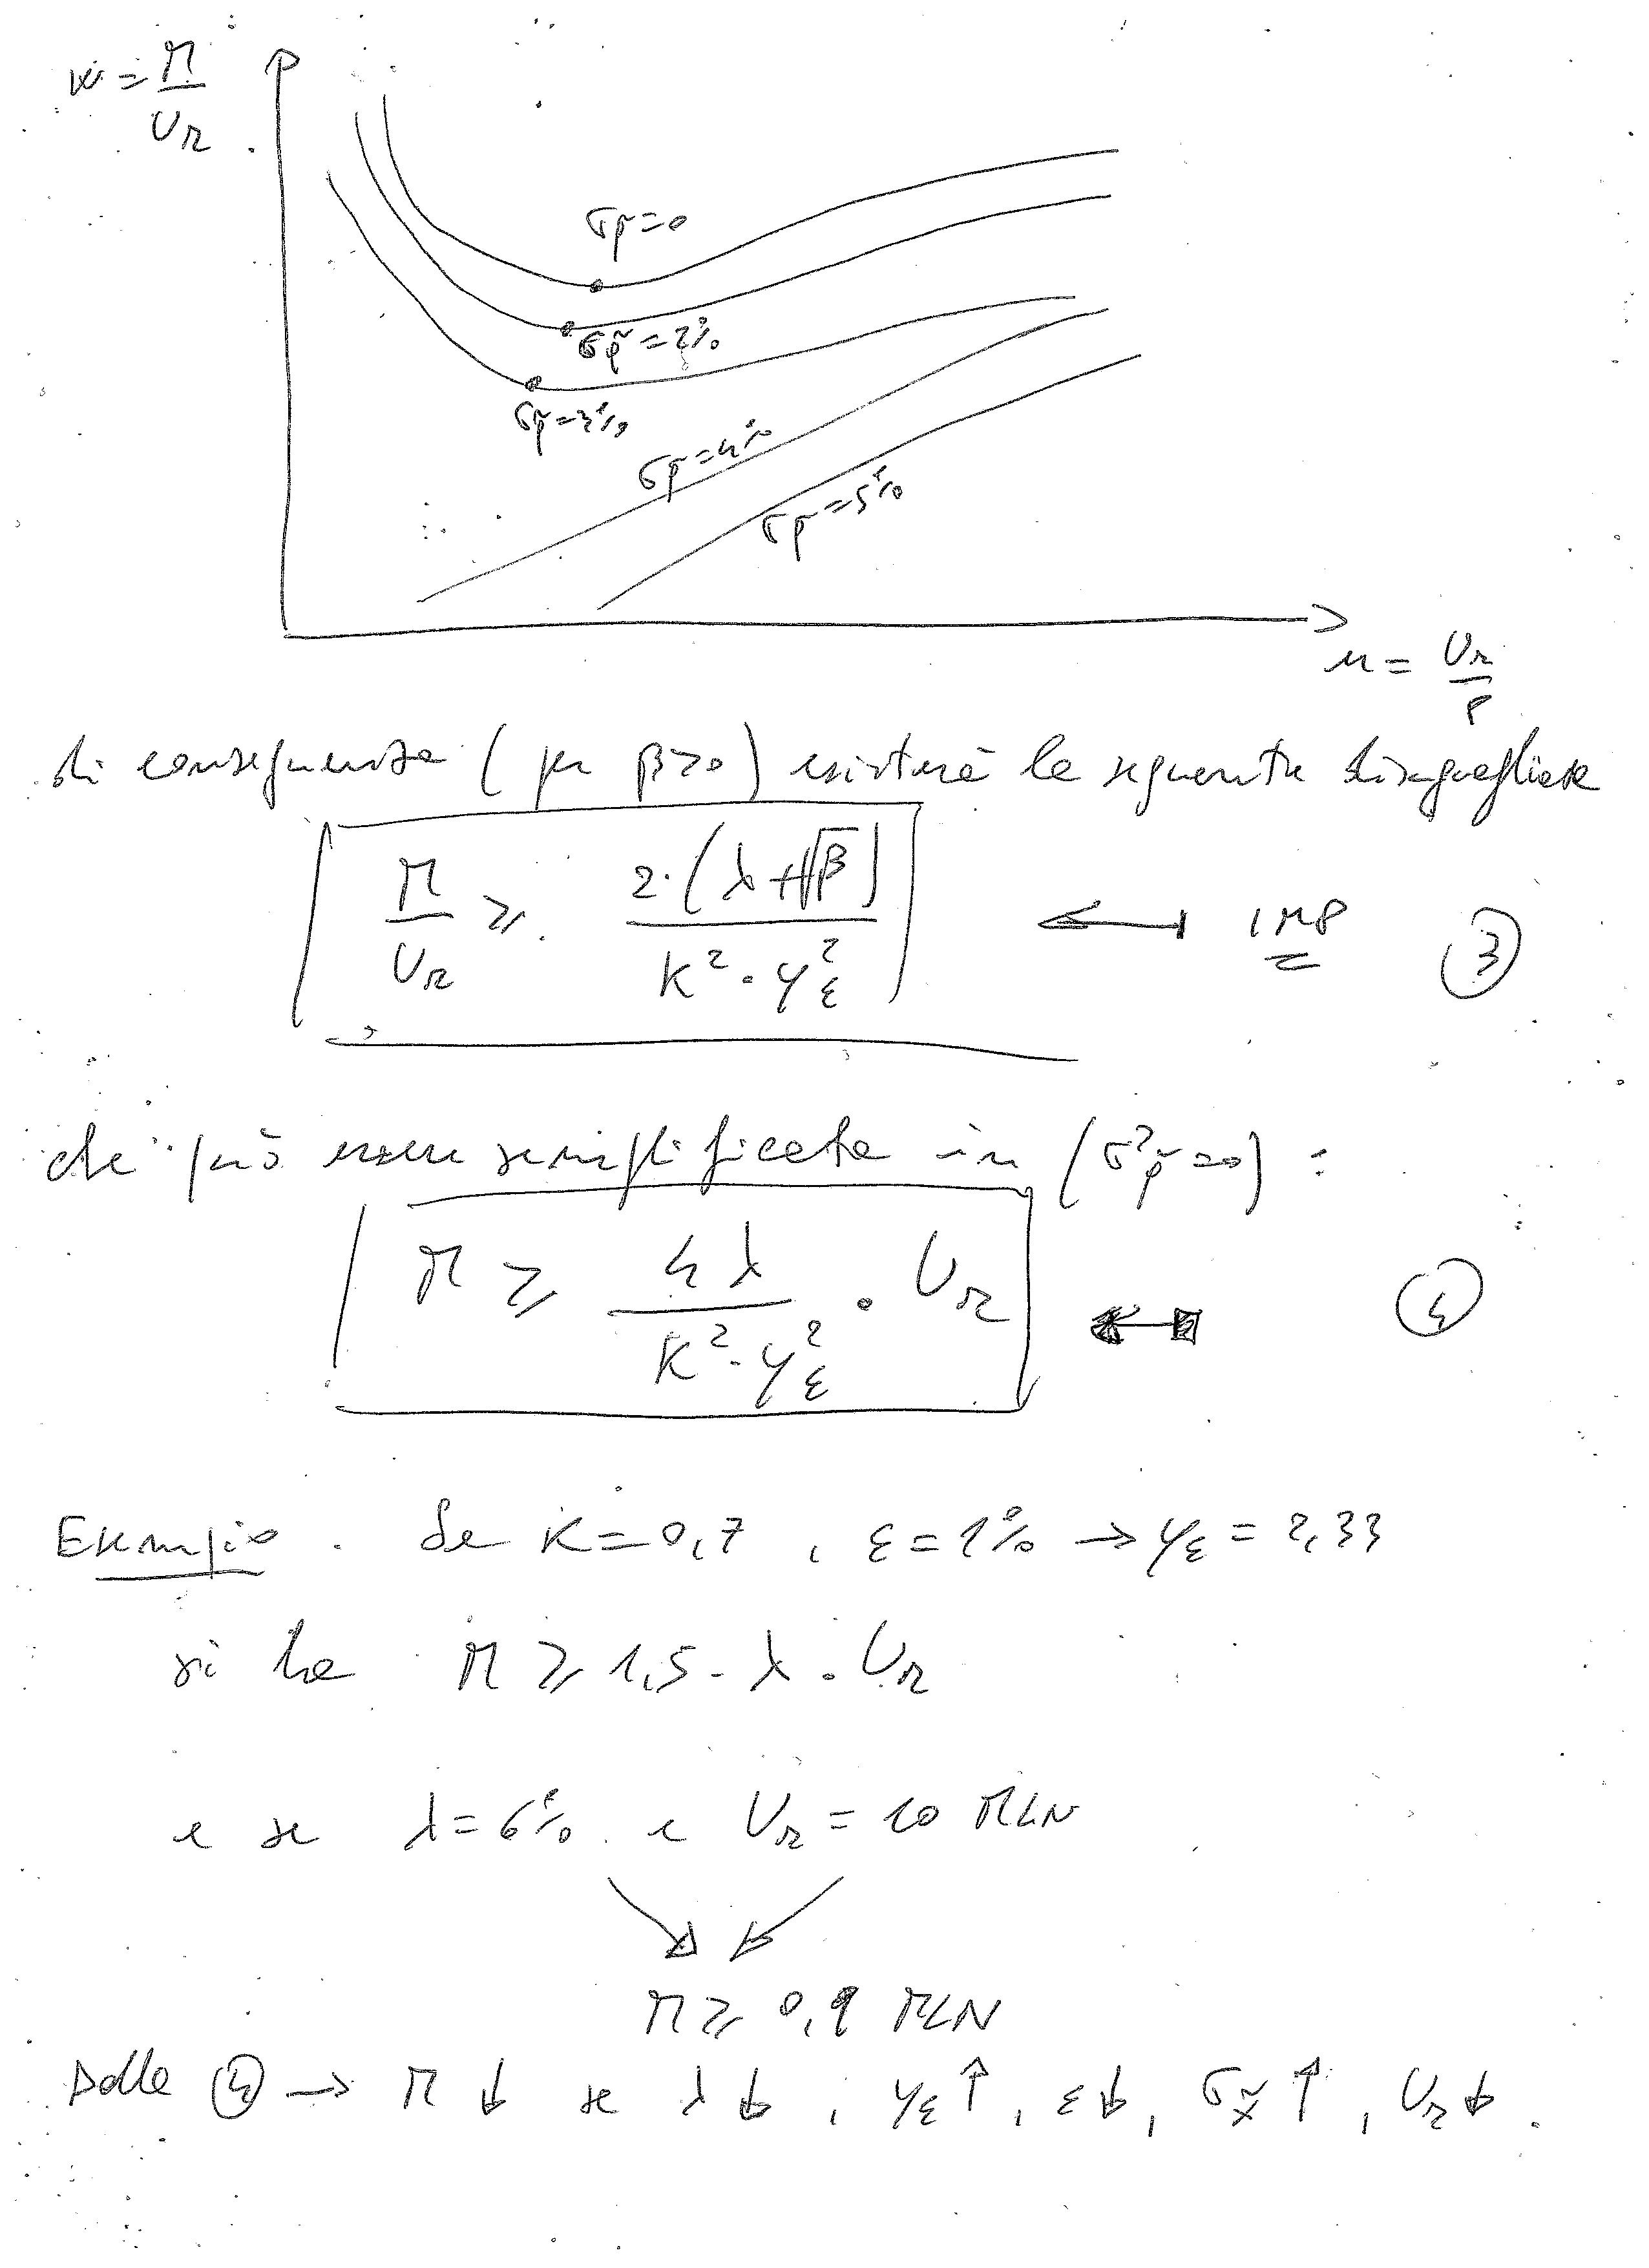 w = M / U_R
σ_p̃ = 0
σ_p̃ = 2%
σ_p̃ = 3%
σ_p̃ = 4%
σ_p̃ = 5%
u = U_R / P
di conseguenza (per β>0) esisterà la seguente disuguaglianza
M / U_R ≥ 2·(λ+√β) / K²·y²_ε ← IMP ③
che può essere semplificata in (σ²_p̃ = 0) :
M ≥ 4λ / K²·y²_ε · U_R ← ④
Esempio. Se K = 0,7, ε = 1% → y_ε = 2,33
si ha M ≥ 1,5 · λ · U_R
e se λ = 6% e U_R = 10 MLN
M ≥ 0,9 MLN
Dalla ④ → M ↓ se λ ↓, y_ε ↑, ε ↓, σ_x̃ ↑, U_R ↓.